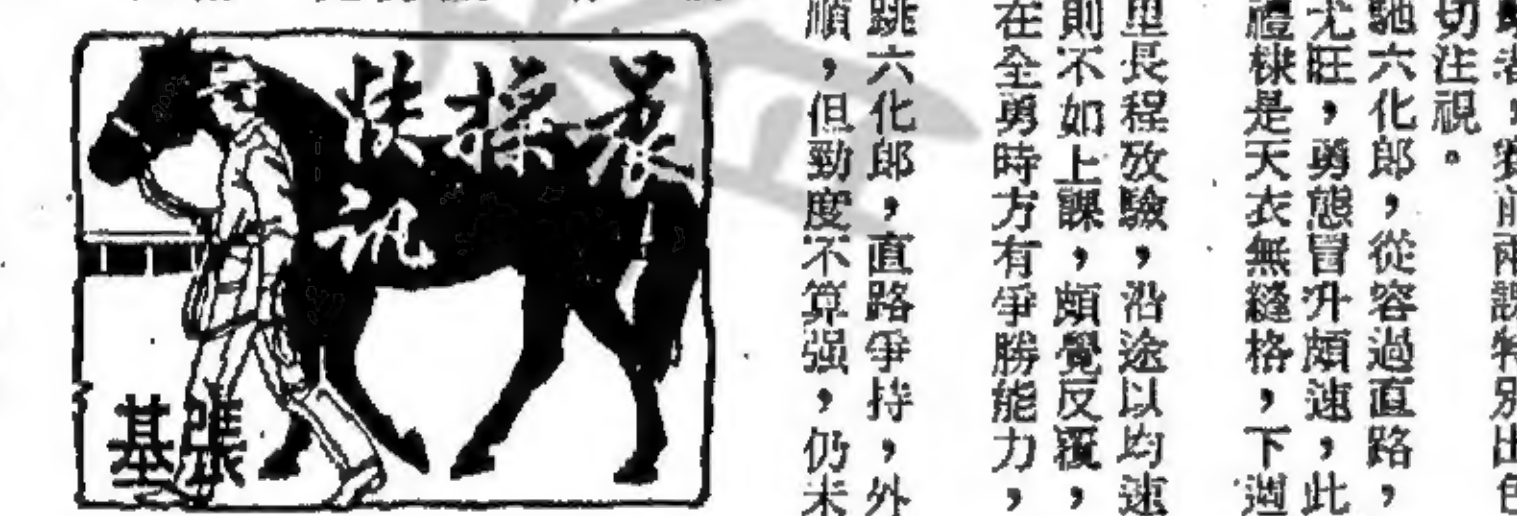 者，賽前兩課特別出色
切注視。
馳六化郎，從容過直路，
尤旺，勇態冒升頗速，此
禮棣是天衣無縫格，下週
里長程攷驗，沿途以均速
則不如上課，頗覺反覆，
在全勇時方有爭勝能力，
跳六化郎，直路爭持，外
順，但勁度不算强，仍未
晨操快訊
張基